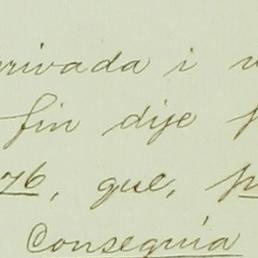 rivada i
fin dije
76, que,
Conseguía